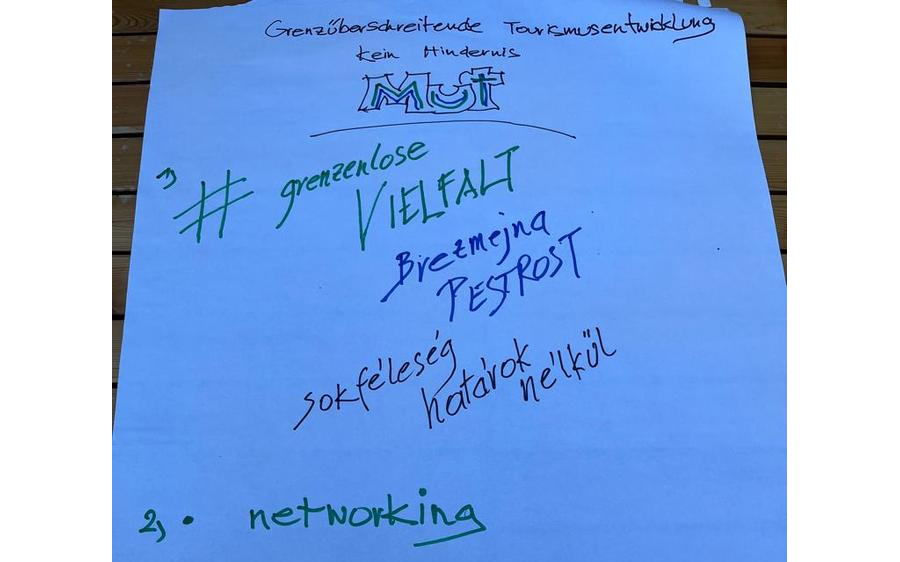 Grenzüberschreitende Tourismusentwicklung
kein Hindernis
Mut
1) # grenzenlose
VIELFALT
Brezmejna
PESTROST
sokféleség
határok
nélkül
2) • networking